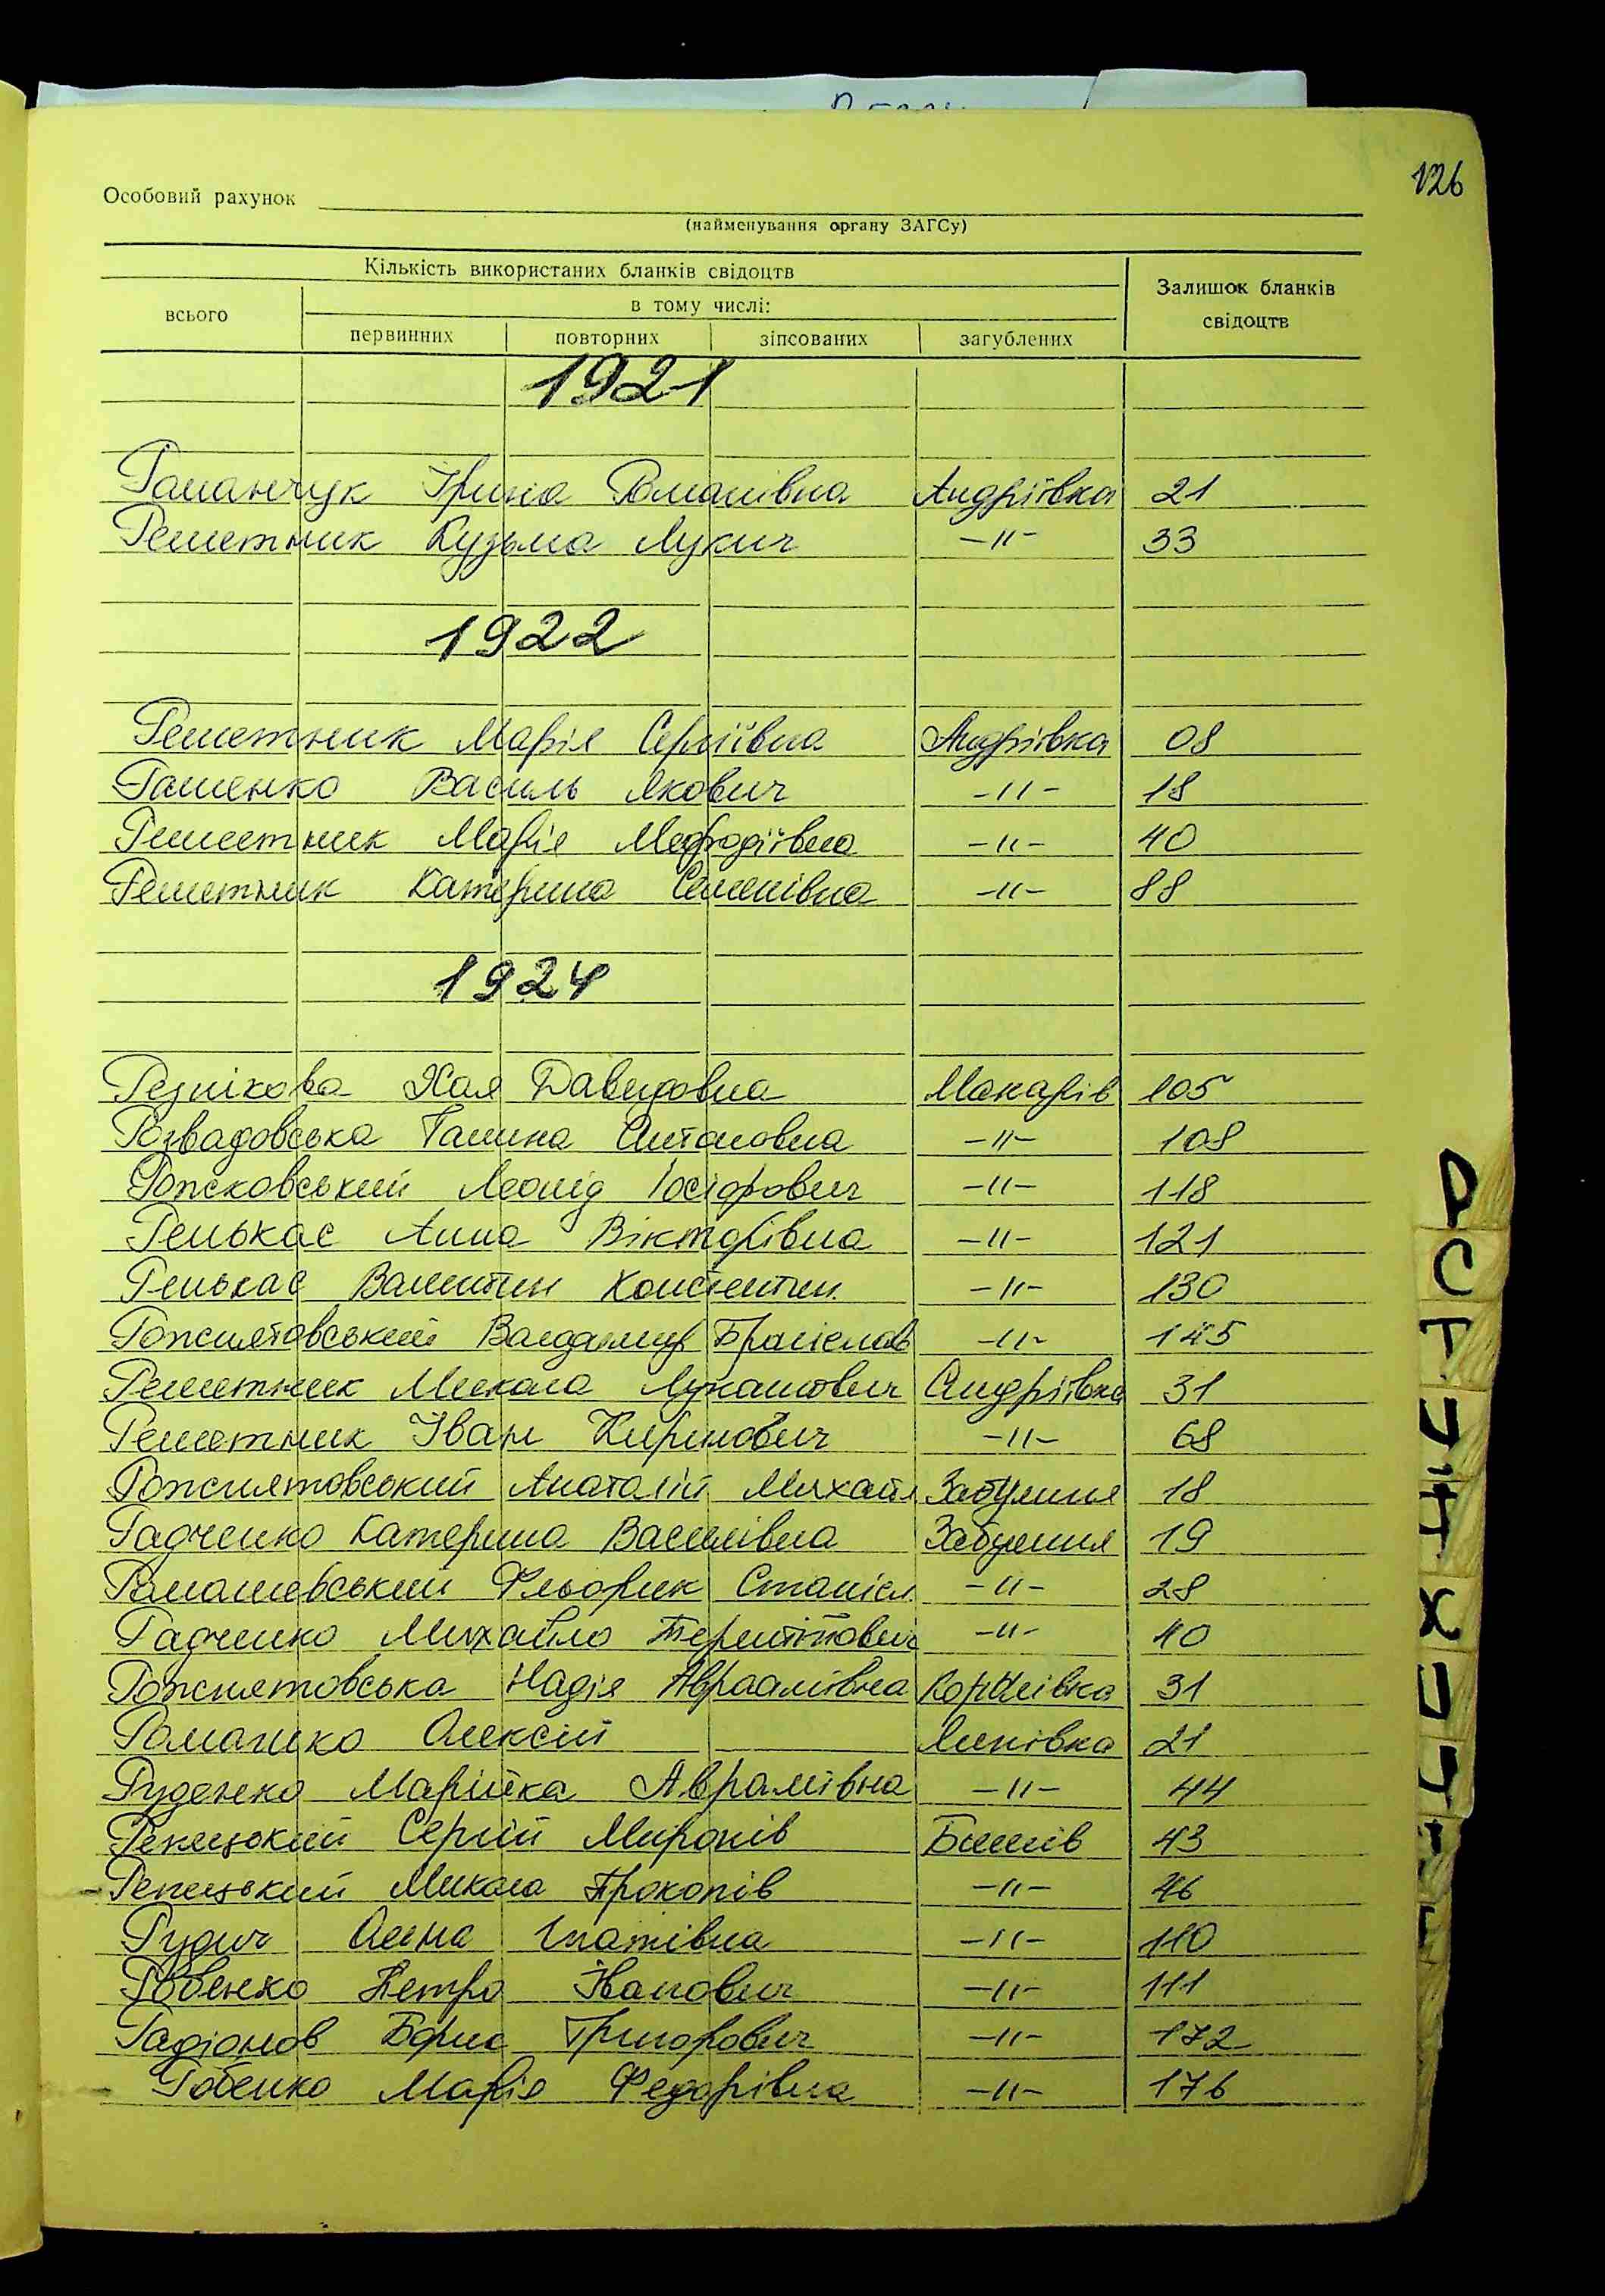 126
Особовий рахунок
(найменування органу ЗАГСу)
Кількість використаних бланків свідоцтв
Залишок бланків свідоцтв
всього
в тому числі:
первинних повторних зіпсованих загублених
1921
Романчук Ірина Романівна Андріївка 21
Решетник Кузьма Лукич -||- 33
1922
Решетник Марія Сергіївна Андріївка 08
Гашенко Василь Якович -||- 18
Решетник Марія Мефодіївна -||- 40
Решетник Катерина Семенівна -||- 88
1924
Резнікова Хая Давидовна Макарів 105
Розвадовська Галина Антоновна -||- 108
Рожковський Леонід Іосіфович -||- 118
Ренькас Анна Вікторівна -||- 121
Ренькас Валентин Констентин. -||- 130
Рожнятовський Володимир Броніслав -||- 145
Решетник Микола Лукашович Андріївка 31
Решетник Іван Кирилович -||- 68
Рожнятовський Анатолій Михайл Забуяння 18
Радченко Катерина Василівна Забуяння 19
Ромашевський Фльорик Станісл. -||- 28
Радченко Михайло Терентійович -||- 40
Рожнятовська Надія Авраамівна Корніївка 31
Романко Олексій Липівка 21
Руденко Марійка Аврамівна -||- 44
Репецький Сергій Миронів Бишів 43
Репецький Микола Прокопів -||- 46
Рудич Ганна Ігнатівна -||- 110
Ровенко Петро Іванович -||- 111
Радіонов Борис Григорович -||- 172
Робенко Марія Федорівна -||- 176
Р
С
Т
У
Х
Ц
Ч